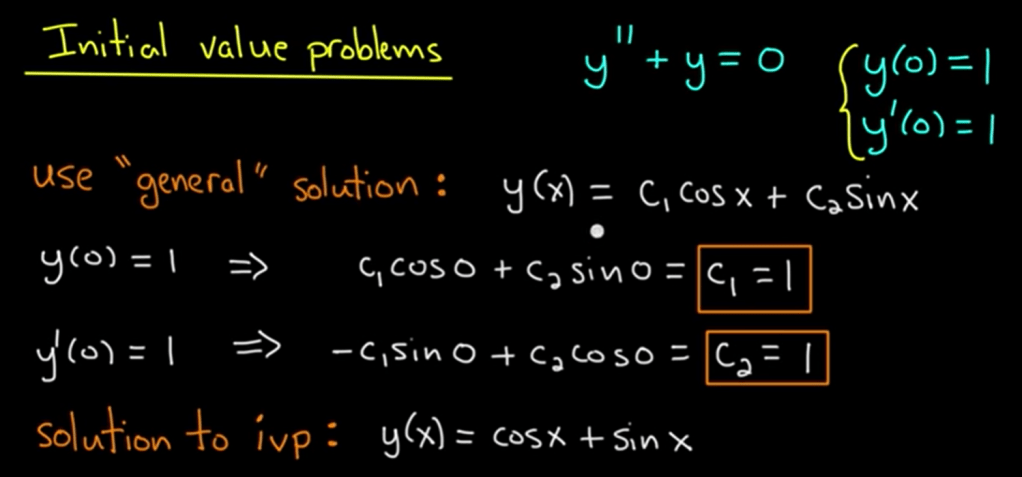 Initial value problems
y'' + y = 0 { y(0) = 1
y'(0) = 1
use "general" solution : y(x) = c₁ cos x + c₂ sin x
y(0) = 1 ⇒ c₁ cos 0 + c₂ sin 0 = c₁ = 1
y'(0) = 1 ⇒ -c₁ sin 0 + c₂ cos 0 = c₂ = 1
solution to ivp : y(x) = cos x + sin x